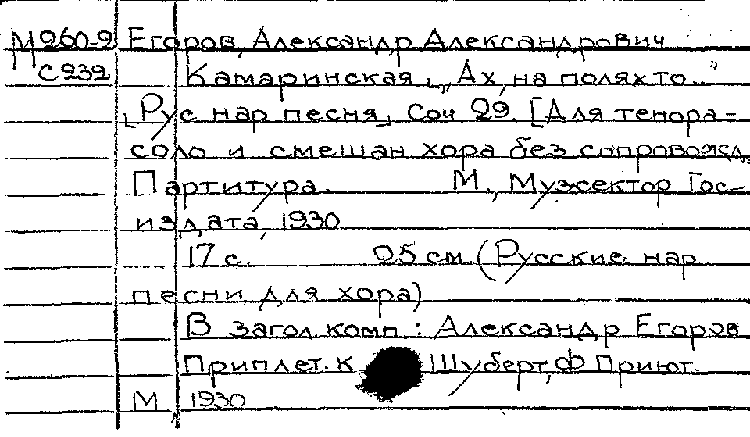 М260-2 Егоров, Александр Александрович
С232 Камаринская „Ах, на полях то..."
[Рус нар песня] Соч 29. [Для тенора-
соло и смешан хора без сопровожд.
Партитура. М., Музсектор Гос-
издата, 1930
17 с. 25 см (Русские нар
песни для хора)
В загол комп: Александр Егоров
Приплет. к Шуберт, Ф Приют
М, 1930